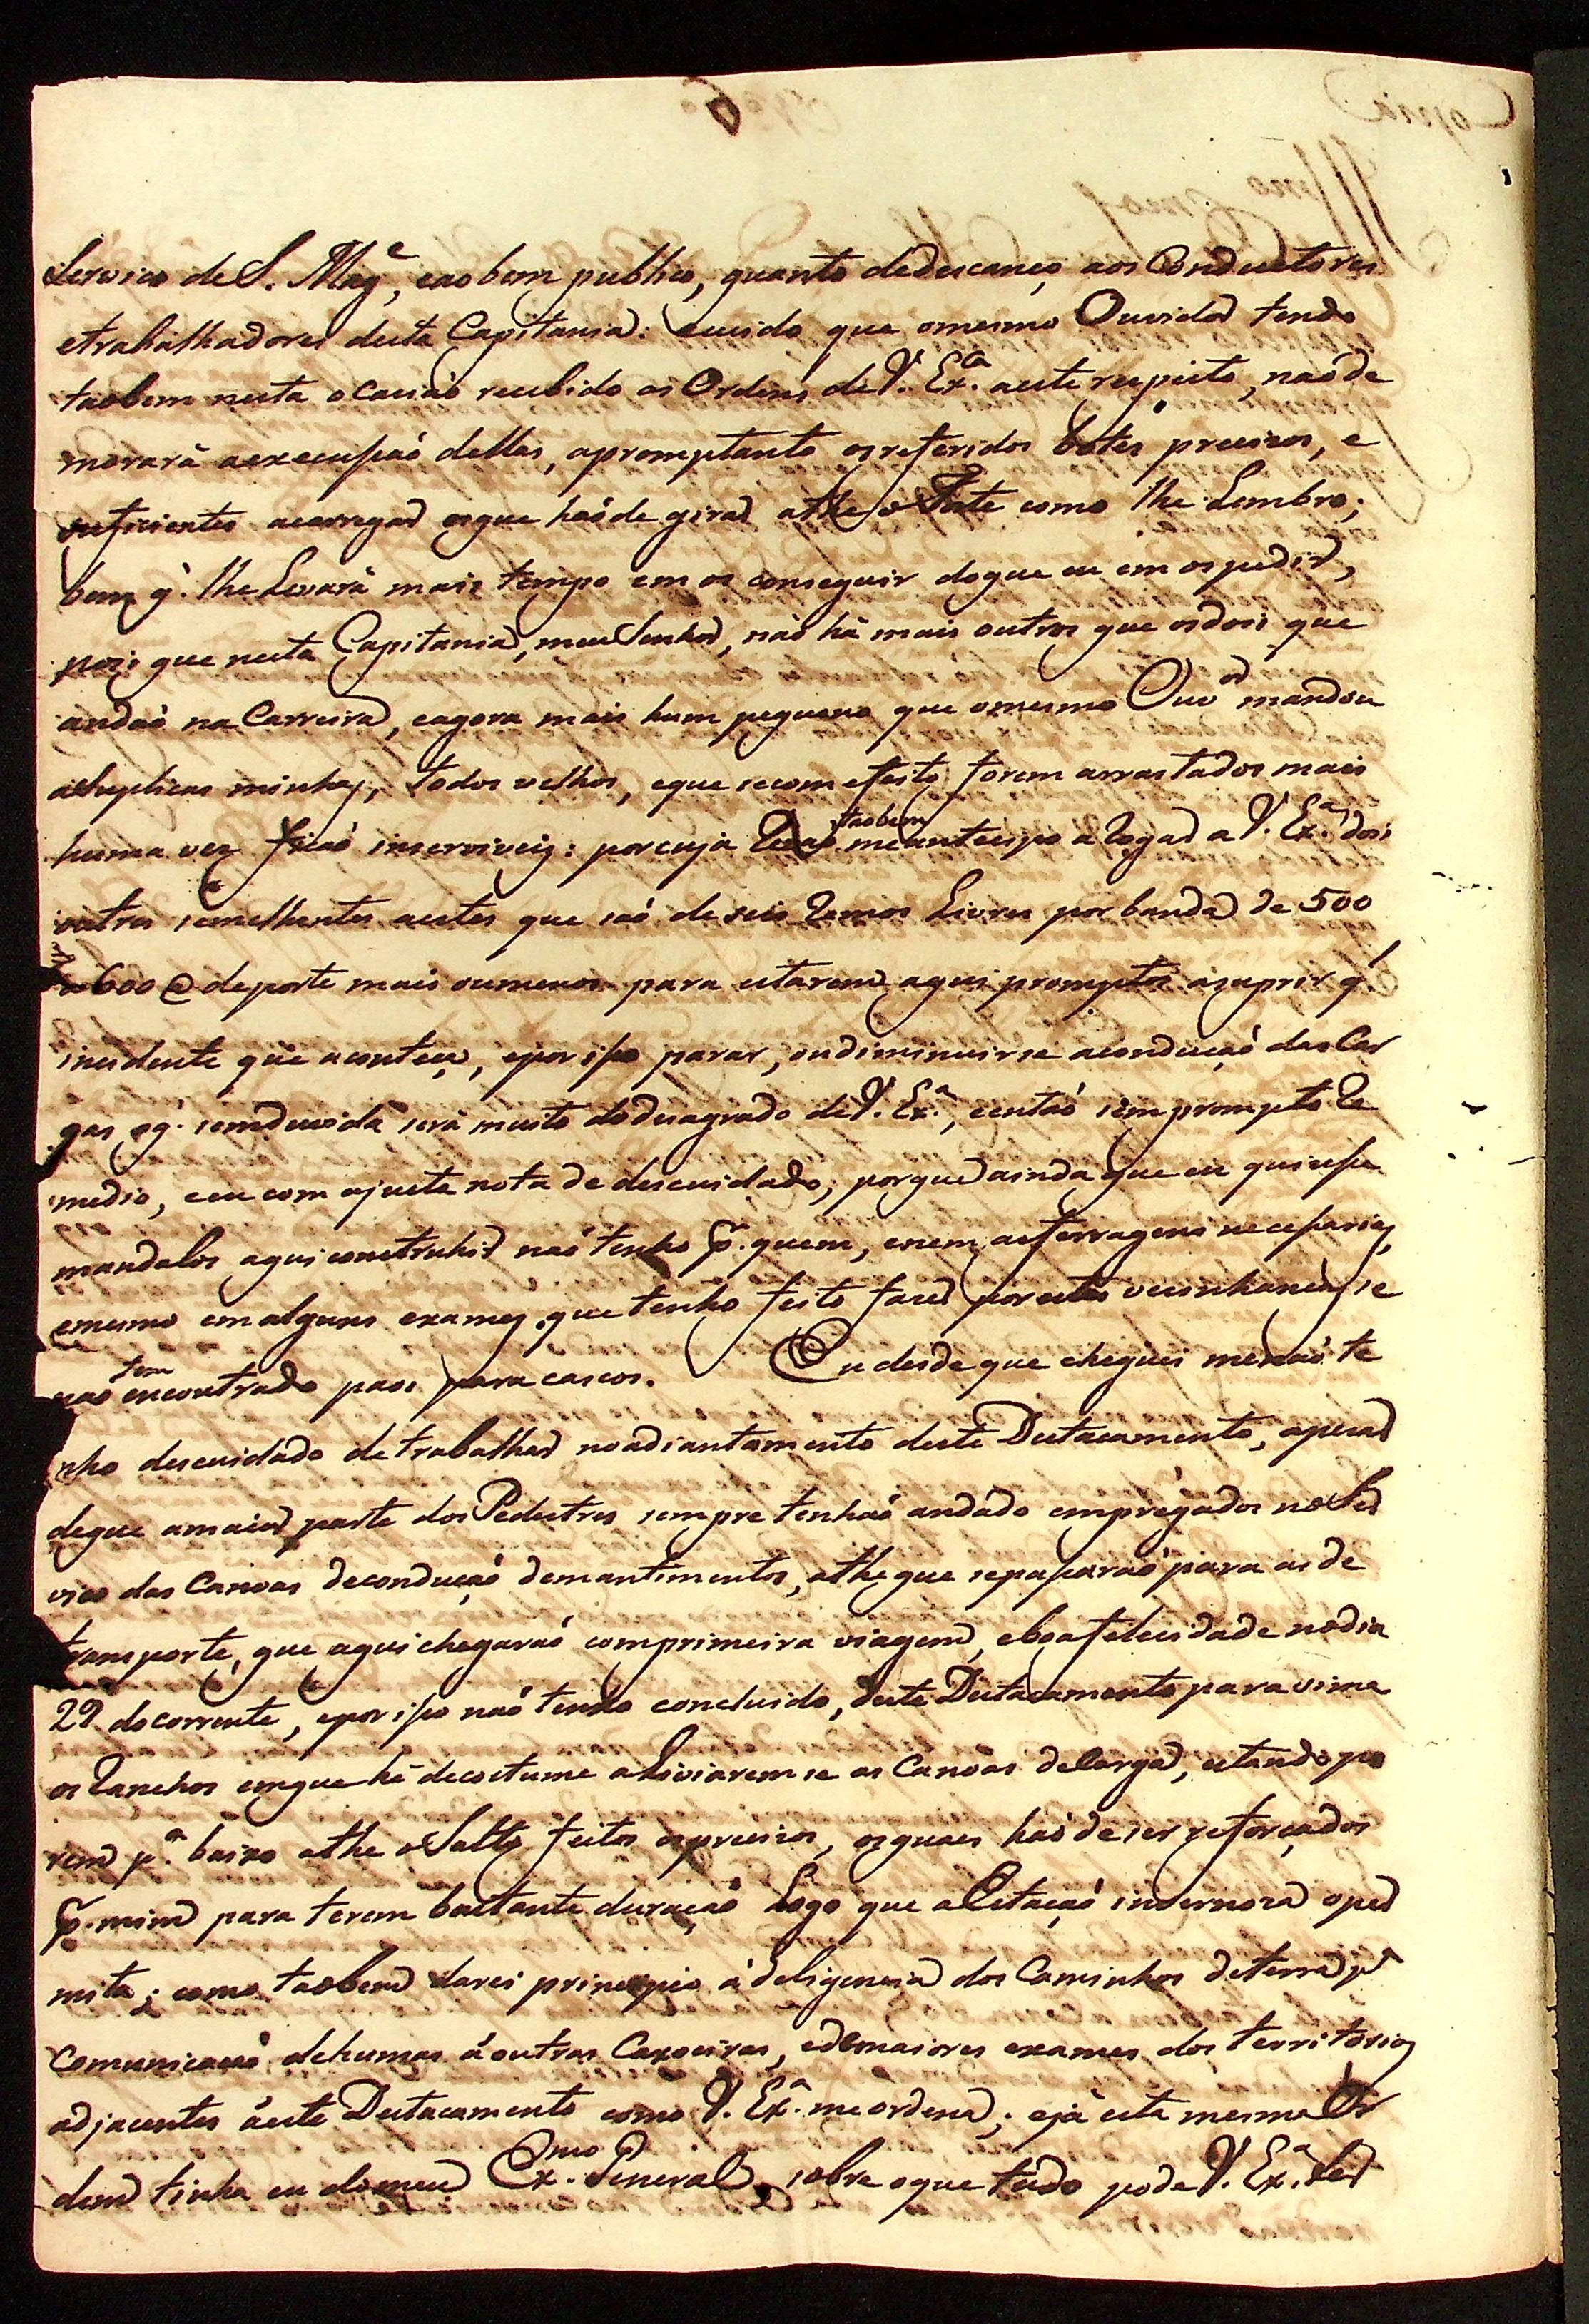 Serviço de S. Mag.e, eaobem publico, quanto dedescanço aos Conductores
etrabalhadores desta Capitania: cuido que omesmo Ouvidor tendo
taobem nesta ocaziaõ recebido as Ordens de V. Ex.ca aeste respeito, naõ de
morarà aexecuçaõ dellas, apromptanto osreferidos botes precizos, e
suficientes acarregar osque haõde girar athe o Forte como lhe Lembro;
bem q̃. lhe Levarà mais tempo em os conseguir doque eu em ospedir,
pois que nesta Capitania, meu Senhor, não hà mais outros que osdois que
andaõ na Carreira, eagora mais hum pequeno que omesmo Ouv.or mandou
aSuplicas minhas, todos velhos, eque secomefeito forem arrastados mais
huma vez ficaõ inserviveis: porcuja Rezaõ taobem meantecipo a Rogar a V. Ex.a dois
outros semelhantes aestes que saõ de seis Remos Livres por banda de 500
a 600 @ deporte mais oumenos para estarem aqui promptos asuprir q.
incidente que aconteça, eporisso parar, oudiminuirse aconduçaõ das Car
gas oq̃. semduvida serà muito dodesagrado deV. Ex.a, eentaõ sem prompto Re
medio, eeu com ajusta nota de descuidado; porque ainda que eu quizesse
mandalos aqui construhir naõ tenho p.r quem, enem asferragens necessarias,
emesmo em alguns exames que tenho feito fazer por estas vezinhanças se
naõ tem encontrado paos para cascos. Eu desde que cheguei menaõ te
nho descuidado de trabalhar noadiantamento deste Destacamento, apezar
deque amaior parte dos Pedestres sempre tenhaõ andado empregados no Ser
viço das Canoas deconduçaõ demantimentos, atheque sepassaraõ para as de
transporte, que aqui chegaraõ comprimeira viagem, eboafelecidade nodia
29 do corrente, eporisso naõ tendo concluido, deste Destacamento para sima
os Ranchos emque hè decostume aLiviaremse as Canoas deCarga, estando po
rem p.a baixo athe oSalto feitos osprecizos, osquaes haõ de ser reforçados
p.r mim para terem bastante duraçaõ Logo que aEstaçaõ invernoza oper
mita; como taobem darei principio à deligencia dos Caminhos deterra p.a
Comunicaçaõ dehumas à outras Caxoeiras, edemaiores exames dos territorios
adjacentes àeste Destacamento como V. Ex.a me ordena; ejà esta mesma Or
dem tinha eu domeu Ex.mo General, sobre oque tudo pode V. Ex.a Ser